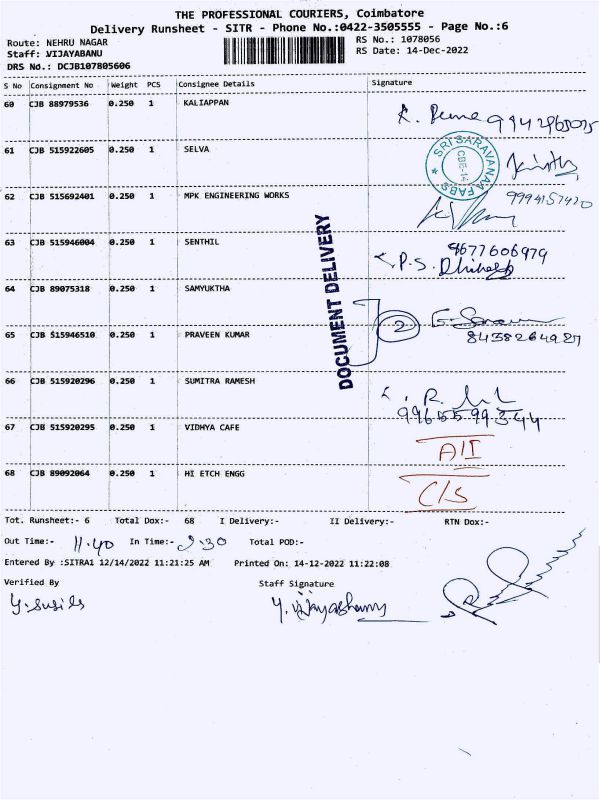 THE PROFESSIONAL COURIERS, Coimbatore
Delivery Runsheet - SITR - Phone No.:0422-3505555 - Page No.:6
Route: NEHRU NAGAR
RS No.: 1078056
Staff: VIJAYABANU
RS Date: 14-Dec-2022
DRS No.: DCJB107805606
S No Consignment No Weight PCS Consignee Details Signature
60 CJB 88979536 0.250 1 KALIAPPAN
61 CJB 515922605 0.250 1 SELVA
SRI SARAVANAA FABS
CBE-14
62 CJB 515692401 0.250 1 MPK ENGINEERING WORKS
9994157420
63 CJB 515946004 0.250 1 SENTHIL
9677606979
P.S.
DOCUMENT DELIVERY
64 CJB 89075318 0.250 1 SAMYUKTHA
2
65 CJB 515946510 0.250 1 PRAVEEN KUMAR
8438264927
66 CJB 515920296 0.250 1 SUMITRA RAMESH
R.
9965599344
67 CJB 515920295 0.250 1 VIDHYA CAFE
A/I
68 CJB 89092064 0.250 1 HI ETCH ENGG
C/S
Tot. Runsheet:- 6 Total Dox:- 68 I Delivery:- II Delivery:- RTN Dox:-
Out Time:- 11.40 In Time:- 2.30 Total POD:-
Entered By :SITRA1 12/14/2022 11:21:25 AM Printed On: 14-12-2022 11:22:08
Verified By Staff Signature